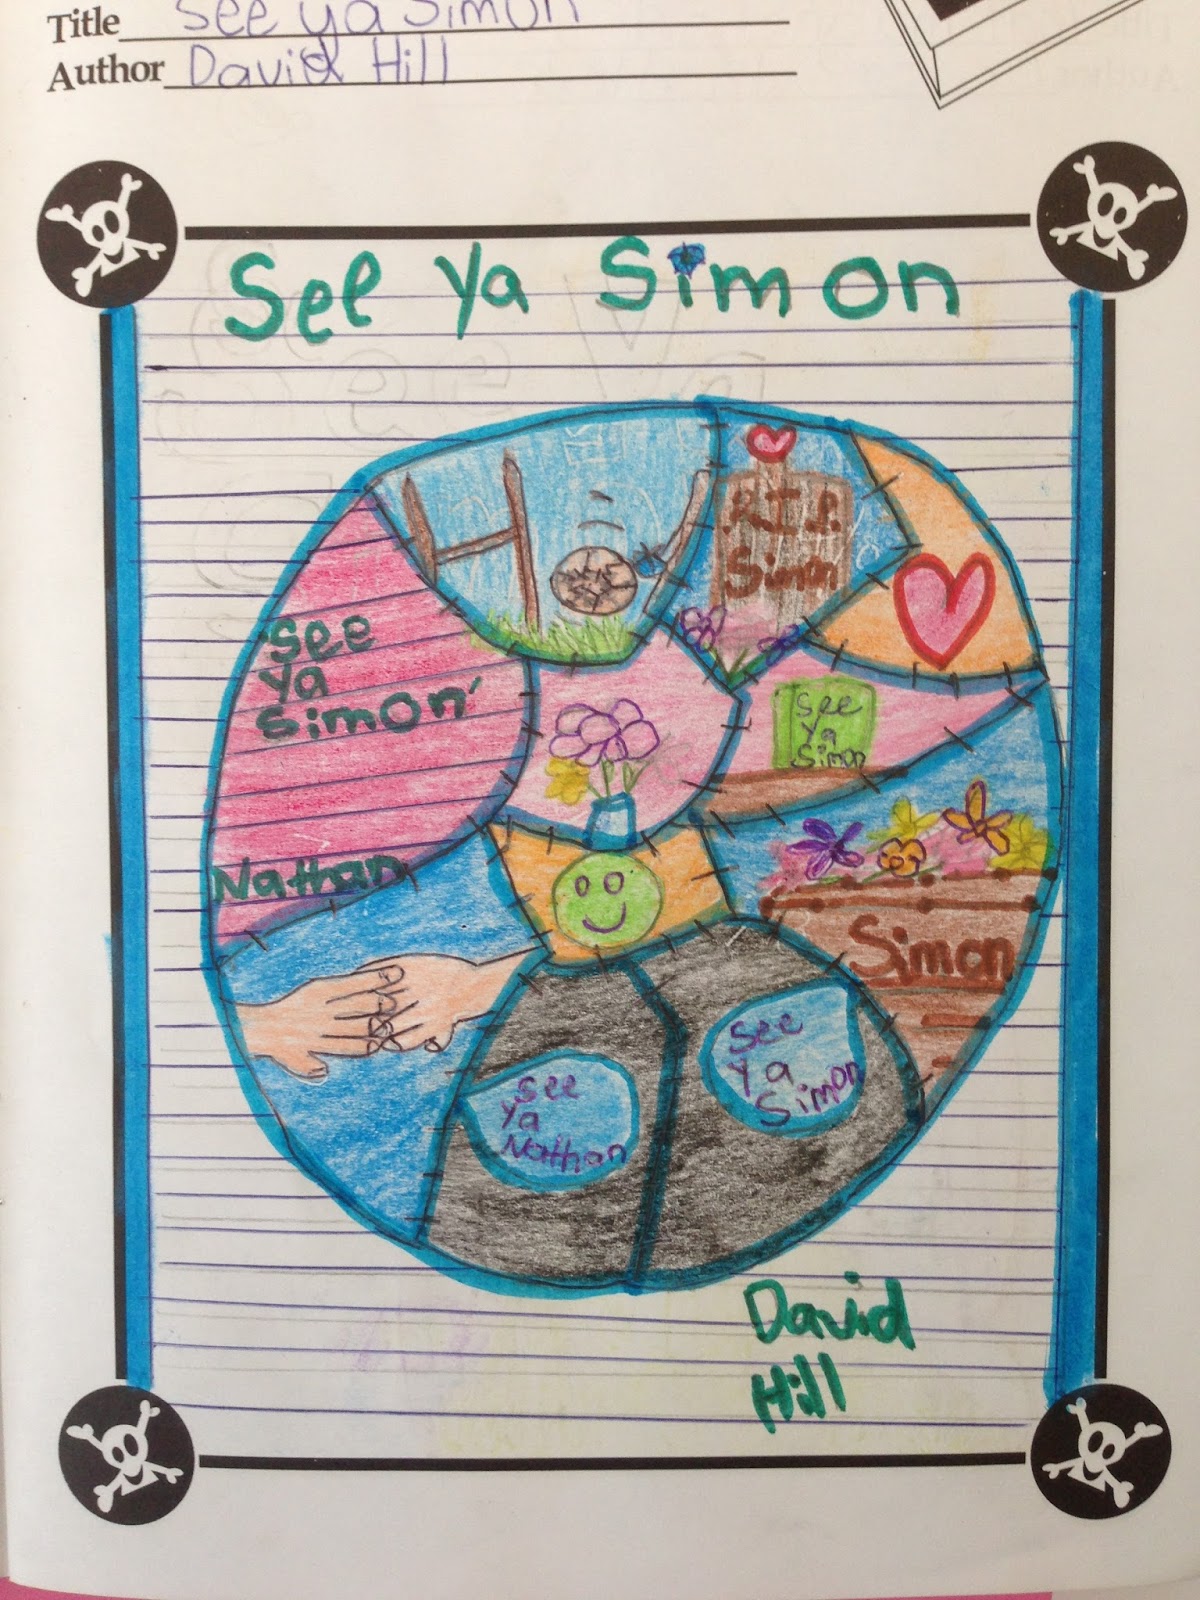 Title See ya Simon
Author David Hill
See Ya Simon
R.I.P.
Simon
See
ya
Simon
Nathan
See
Ya
Simon
Simon
See
Ya
Simon
See
Ya
Nathan
David
Hill